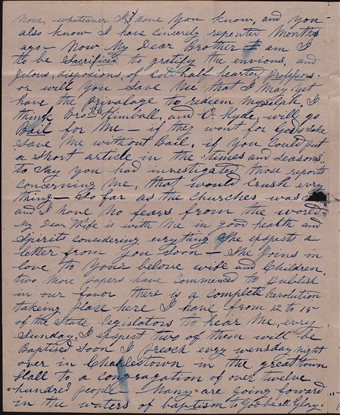 None, whatever I've done You know, and you
also know I have sincerely repented Months
ago - Now My Dear Brother am I
to be Sacrificed to gratify the envious, and
jelous, disposions, of cold half hearted, Professors -
or will you Save Me that I May yet
have the privalage to redeem Myself, I
think Bro. Kimball, and O. Hyde, will go
Bail for Me - if they wont for Gods Sake
Save Me without Bail, if you Could put
a Short article in the Times and Seasons
to Say You had investigated those reports
concerning Me, that would crush evry
thing - So far as the Churches was
and I have No fears from the world
My Dear Wife is with Me in good health and
Spirits considering evrything She expects a
letter from you Soon - She Joins in
love to Your belove wife and Children.
two More papers have Commenced to publish
in our favor there is a complete Revolution
taking place here I have from 12 to 15
of the State legislators to hear Me, evry
Sunday, I expect two of them will be
Baptised Soon I preach evry wensday night
over in Charlestown in the great town
Hall to a congragation of over twelve
hundred people - Many are going forward
in the waters of baptism to God be the Glory